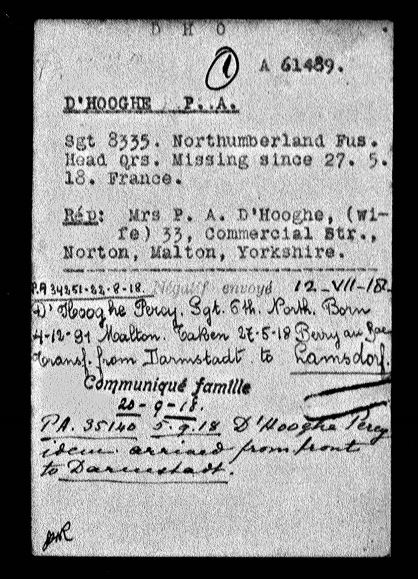 D H O
1 A 61489.
D'HOOGHE P. A.
Sgt 8335. Northumberland Fus.
Head Qrs. Missing since 27. 5.
18. France.
Rép: Mrs P. A. D'Hooghe, (wi-
fe) 33, Commercial Str.,
Norton, Malton, Yorkshire.
P.A 34251-22-8-18. Négatif envoyé 12-VII-18.
D'Hooghe Percy. Sgt. 6th. North. Born
4-12-91 Malton. Taken 27-5-18 Berry au Bac
Transf. from Darmstadt to Lamsdorf.
Communiqué famille
20-9-18.
PA. 35140 5.9.18 D'Hooghe Percy
idem arrived from front
to Darmstadt.